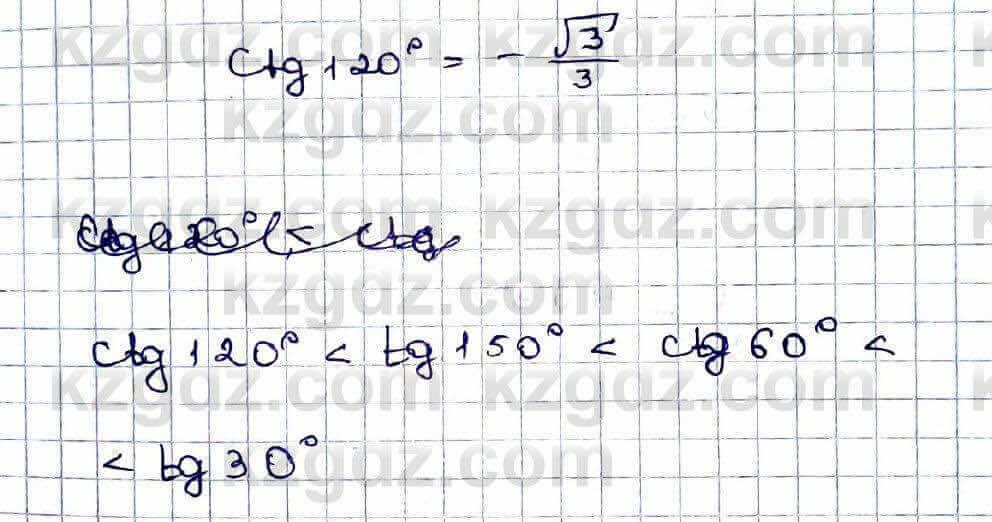 kzgdz.com kzgdz.com
Ctg 120° = - √3/3
kzgdz.com
kzgdz.com kzgdz.com
Ctg 120° < Ctg
kzgdz.com
Ctg 120° < tg 150° < Ctg 60° <
kzgdz.com kzgdz.com
< tg 30°
kzgdz.com